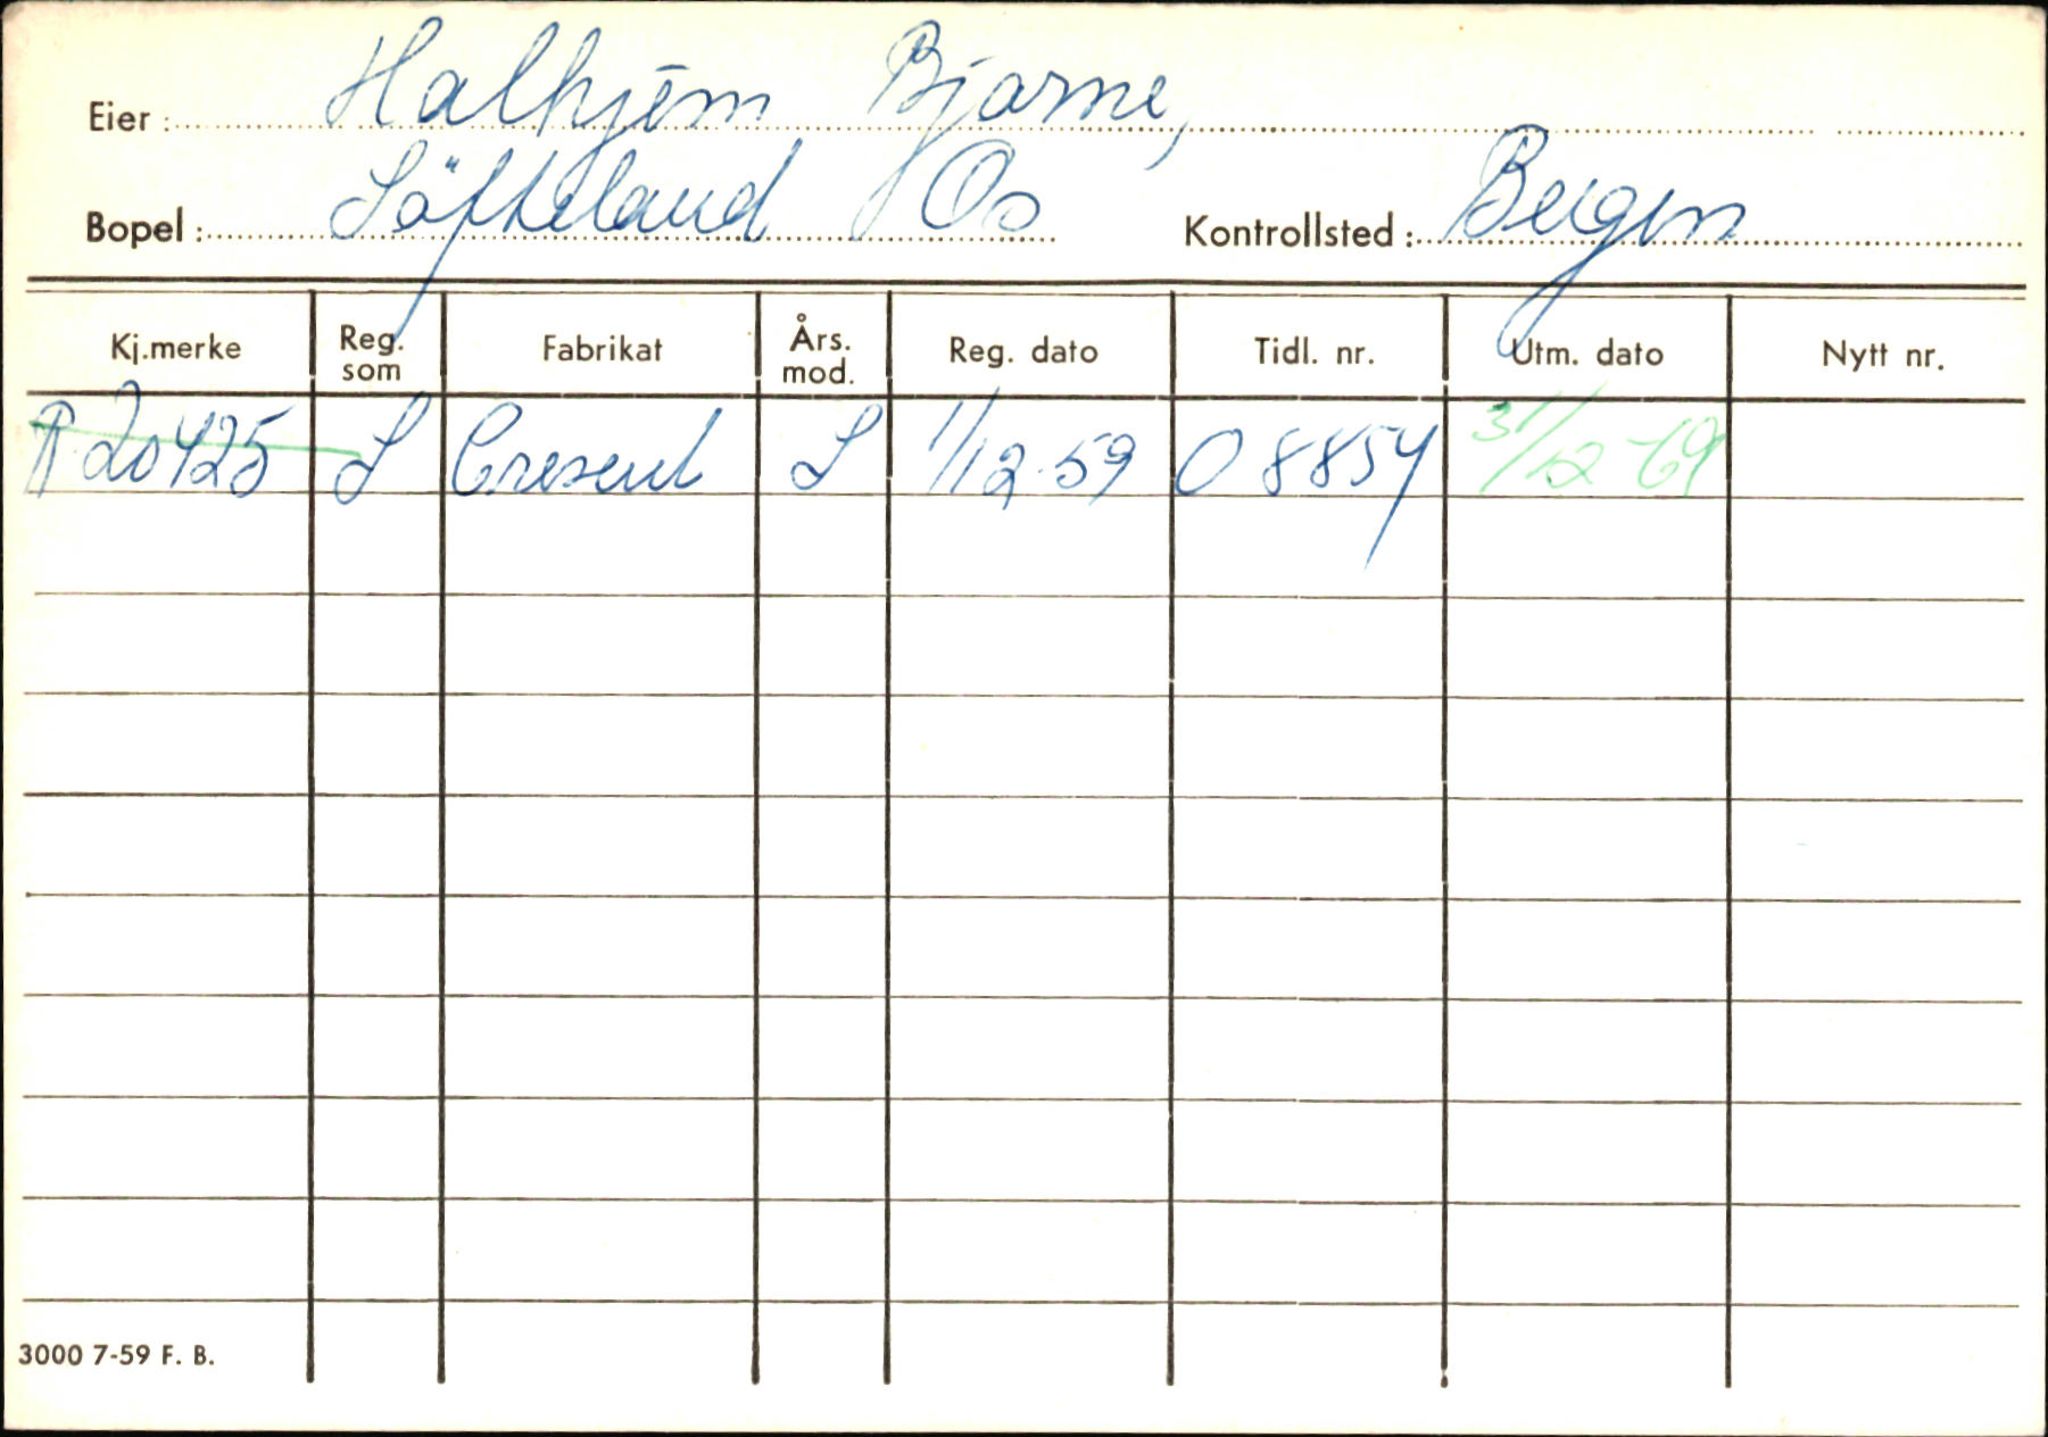 Eier: Halhjem Bjarne,
Bopel: Söfteland Os Kontrollsted: Bergen
Kj.merke Reg. som Fabrikat Års. mod. Reg. dato Tidl. nr. Utm. dato Nytt nr.
R 20425 L Cresent L 1/12-59 O 8854 31/12-69
3000 7-59 F. B.